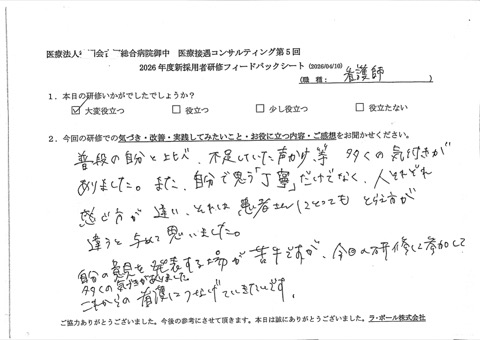 医療法人 総合病院御中 医療接遇コンサルティング第5回
2026年度新採用者研修フィードバックシート (2026/04/10)
(職種: 看護師 )
1．本日の研修いかがでしたでしょうか？
☑ 大変役立つ □ 役立つ □ 少し役立つ □ 役立たない
2．今回の研修での気づき・改善・実践してみたいこと・お役に立つ内容・ご感想をお聞かせください。
普段の自分と比べ、不足していた声かけ等 多くの気付きが
ありました。また、自分で思う「丁寧」だけでなく、人それぞれ
感じ方が違い、それは患者さんにとっても とらえ方が
違うと改めて思いました。
自分の意見を発表する場が苦手ですが、今回の研修に参加して
多くの気づきがありました。
これからの看護につなげていきたいです。
ご協力ありがとうございました。今後の参考にさせて頂きます。本日は誠にありがとうございました。ラ・ポール株式会社